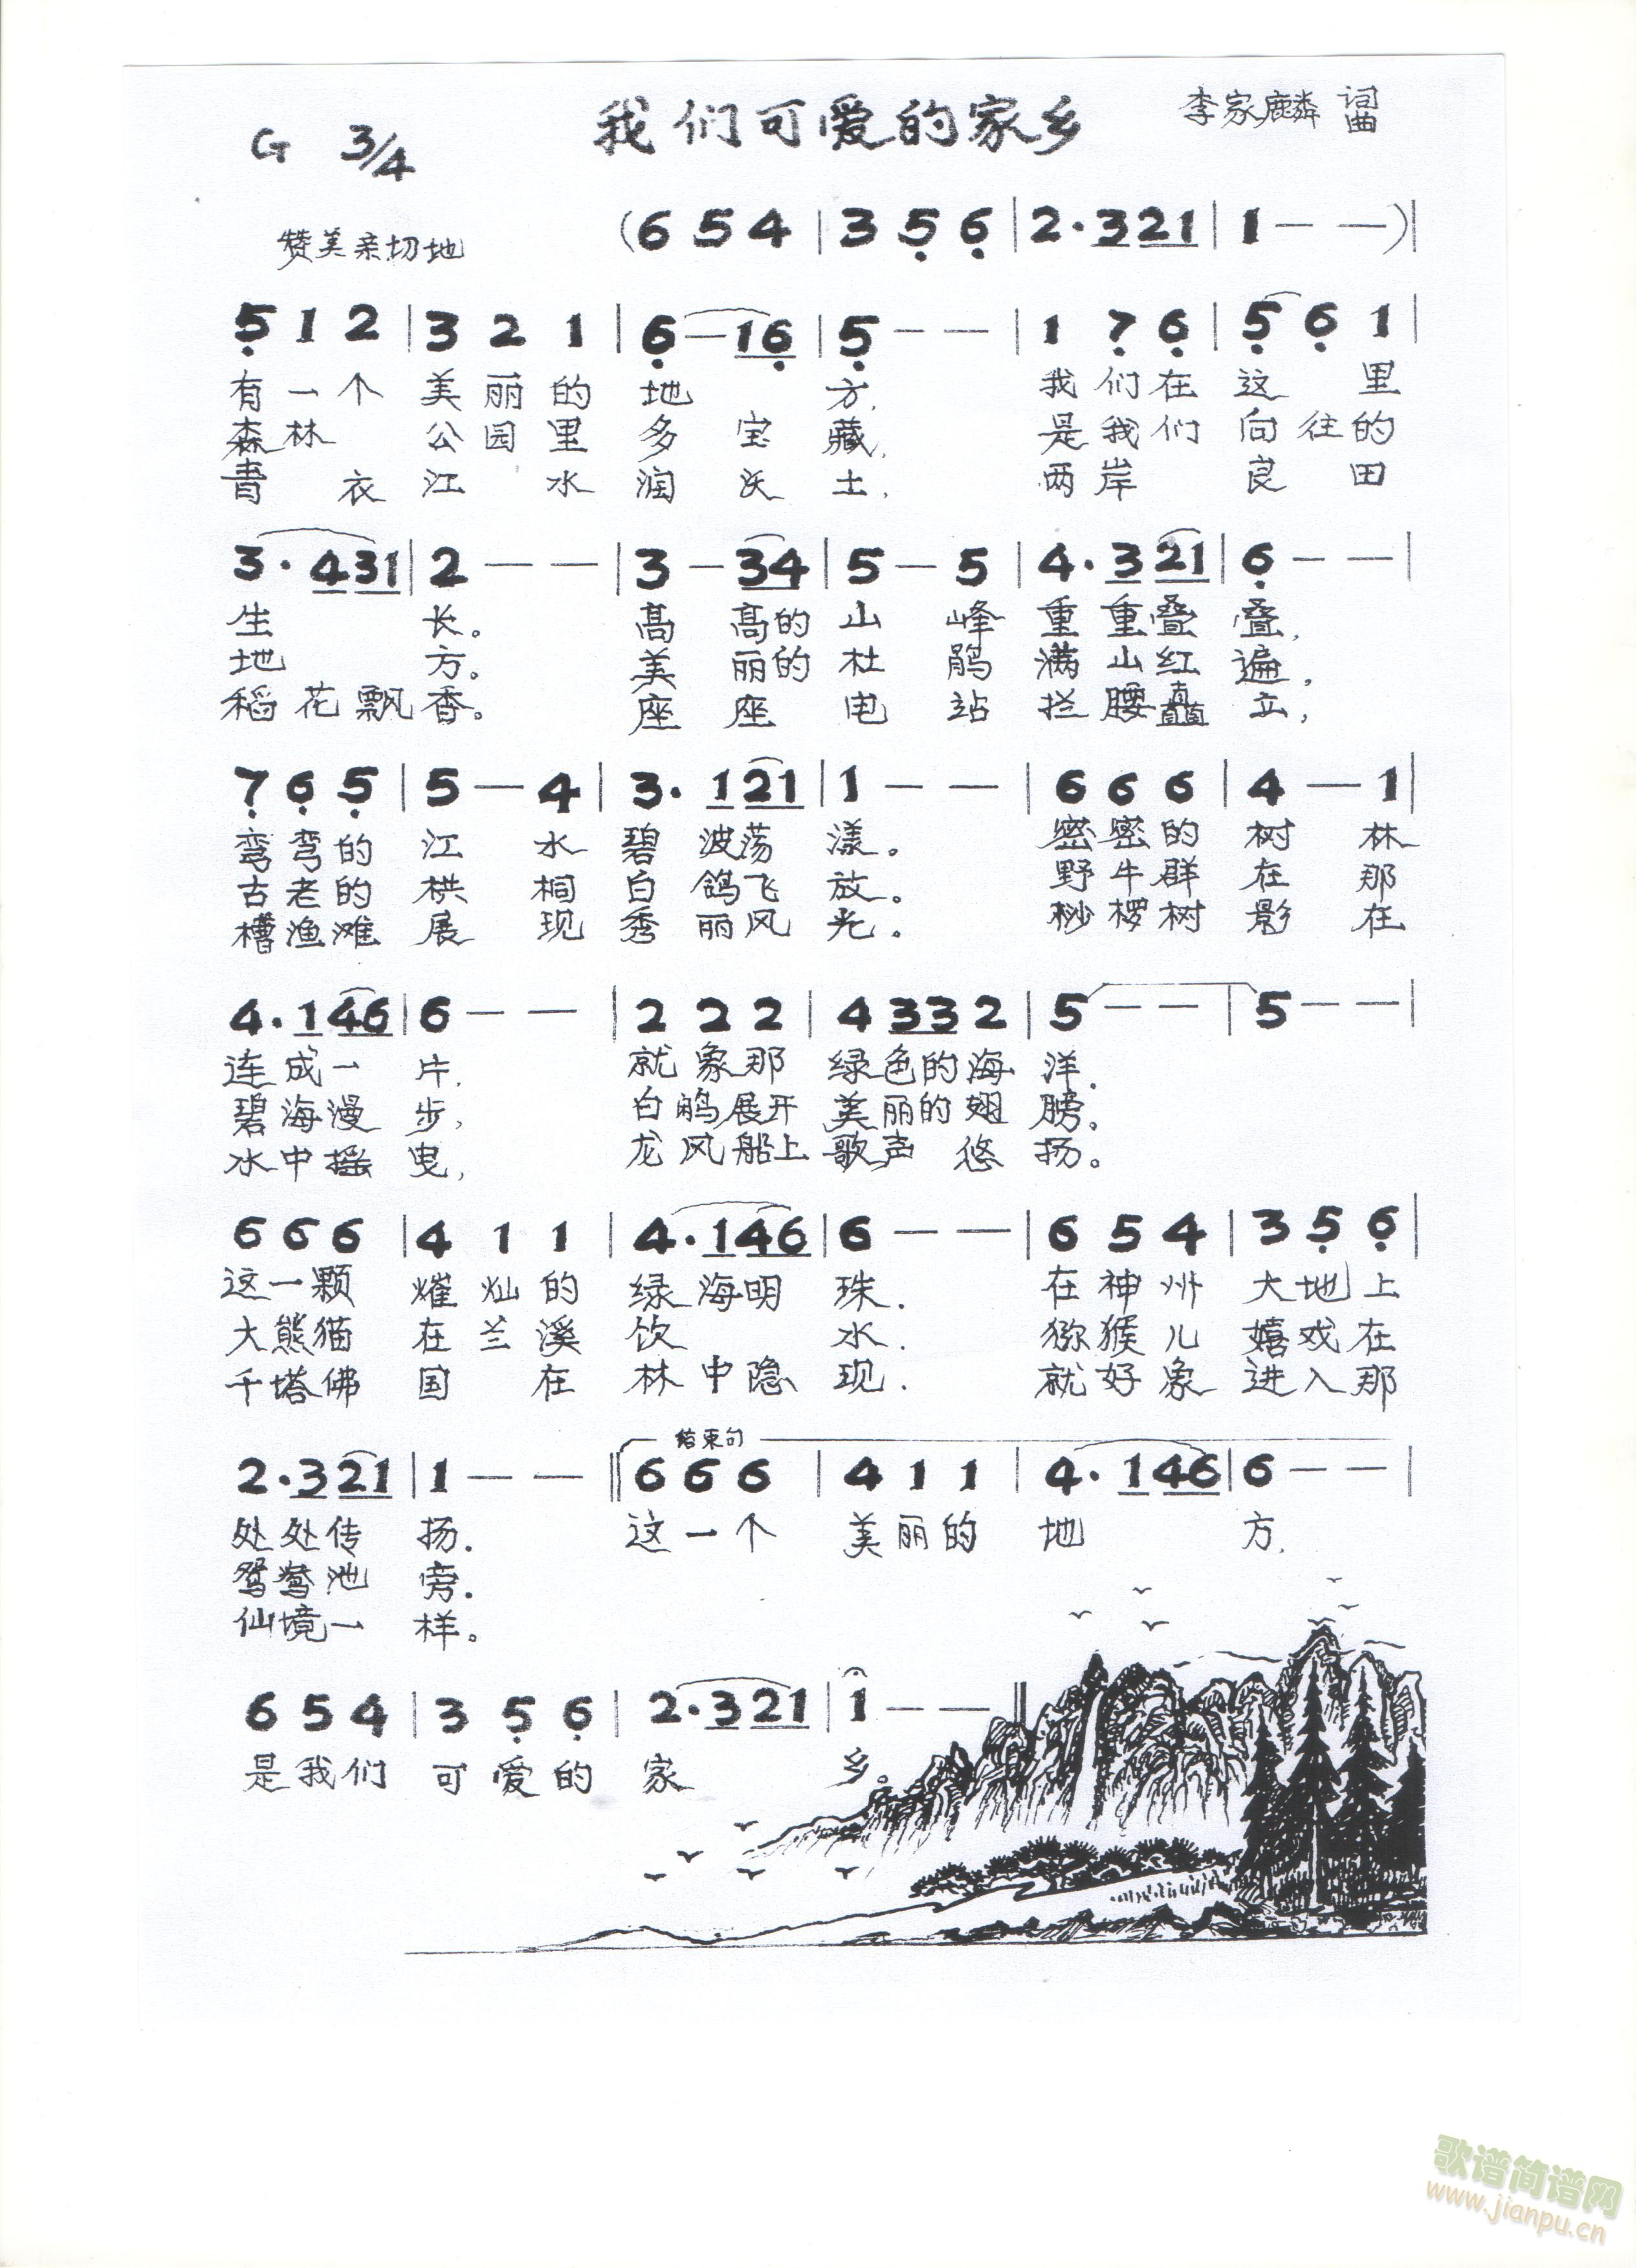 我们可爱的家乡
李家麟 词曲
G 3/4
赞美亲切地
(6 5 4 | 3 5̣ 6̣ | 2· 3 2 1 | 1 — —)|
5̣ 1 2 | 3 2 1 | 6̣ — 1 6̣ | 5̣ — — | 1 7̣ 6̣ | 5̣ 6̣ 1 |
有一个 美丽的 地 方, 我们在 这 里
森林 公园里 多 宝 藏, 是我们 向往的
青 衣 江 水 润 沃 土, 两岸 良 田
3· 4 3 1 | 2 — — | 3 — 3 4 | 5 — 5 | 4· 3 2 1 | 6̣ — — |
生 长。 高 高的 山 峰 重重叠 叠,
地 方。 美 丽的 杜 鹃 满山红 遍,
稻花飘 香。 座 座 电 站 拦腰矗 立,
7̣ 6̣ 5̣ | 5 — 4 | 3· 1 2 1 | 1 — — | 6 6 6 | 4 — 1 |
弯弯的 江 水 碧 波荡 漾。 密密的 树 林
古老的 栱 桐 白 鸽飞 放。 野牛群 在 那
槽渔滩 展 现 秀 丽风 光。 桫椤树 影 在
4· 1 4 6 | 6 — — | 2 2 2 | 4 3 3 2 | 5 — — | 5 — — |
连成一 片, 就象那 绿色的海 洋.
碧海漫 步, 白鹇展开 美丽的翅 膀。
水中摇 曳, 龙风船上 歌声 悠 扬。
6 6 6 | 4 1 1 | 4· 1 4 6 | 6 — — | 6 5 4 | 3 5̣ 6̣ |
这一颗 熣灿的 绿海明 珠. 在神州 大地上
大熊猫 在兰溪 饮 水. 猕猴儿 嬉戏在
千塔佛 国 在 林中隐 现. 就好象 进入那
结束句
2· 3 2 1 | 1 — — ‖ 6 6 6 | 4 1 1 | 4· 1 4 6 | 6 — — |
处处传 扬. 这一个 美丽的 地 方,
鸳鸯池 旁.
仙境一 样。
6 5 4 | 3 5̣ 6̣ | 2· 3 2 1 | 1 — — ‖
是我们 可爱的 家 乡。
歌谱简谱网
www.jianpu.cn